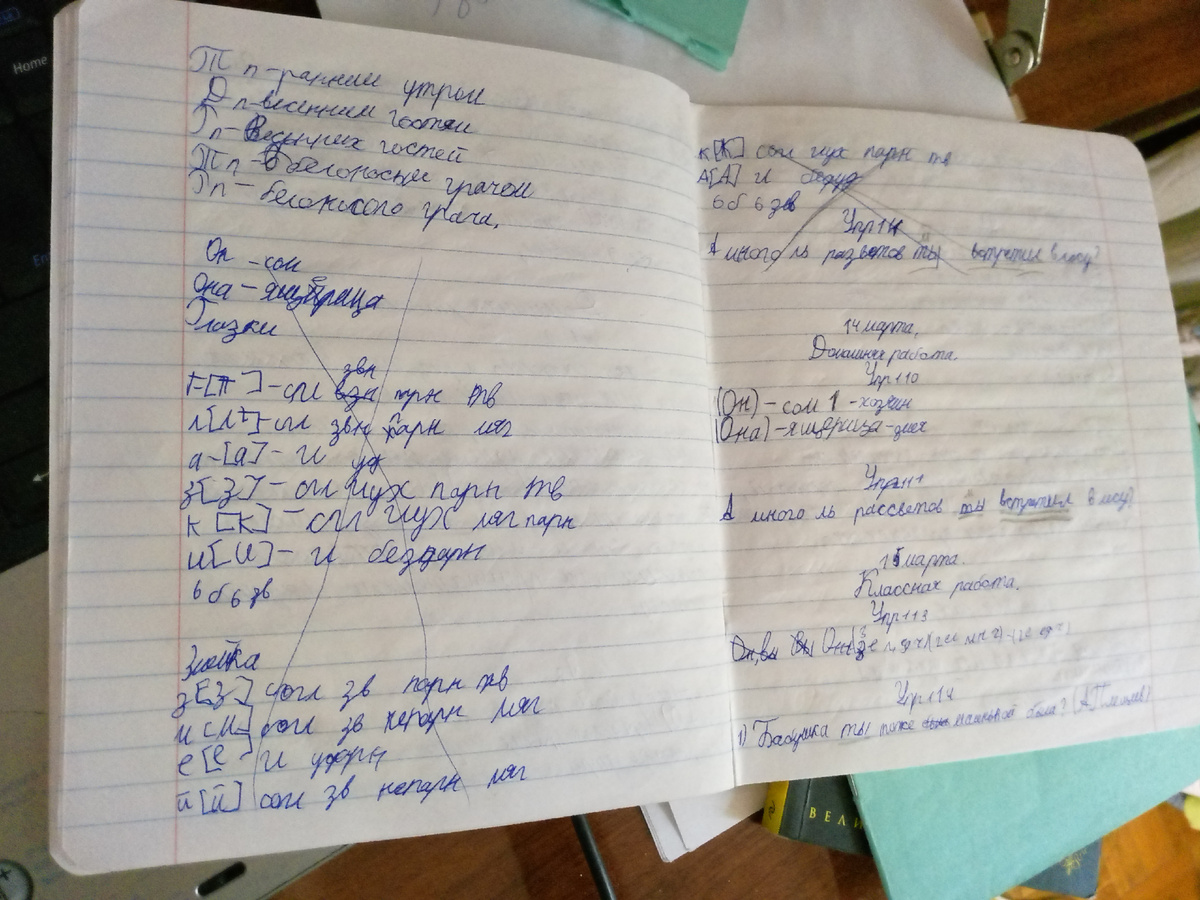 Home
Т п - ранним утром
Д п - весенним гостям
Гп - Весенних гостей
Тп - белоносым грачом
Гп - белоносого грача.
Он - сом
Она - ящерица
Глазки
звн
Г-[Г] - сгл парн тв
л[Л'] - сгл звн парн мяг
а-[а] - гл уд
з[З] - сгл глух парн тв
к [К] - сгл глух мяг парн
и[И] - гл безпарн
6 б 6 зв
Змейка
з[З] согл зв парн тв
м [М] согл зв непарн мяг
е [е - гл
й [й] согл зв непарн мяг
к [К] сгл глух парн тв
А[А] гл безуд
6 б 6 зв
Упр 111
А много ль разветов ты встретил в лесу?
14 марта.
Домашняя работа.
Упр 110
(Он) - сом 1 - хозяин
(Она) - ящерица - змея
Упр 111
А много ль рассветов ты встретил в лесу?
15 марта.
Классная работа.
Упр 113
Упр 114
1) Бабушка ты тоже маленькой была?
ВЕЛИ